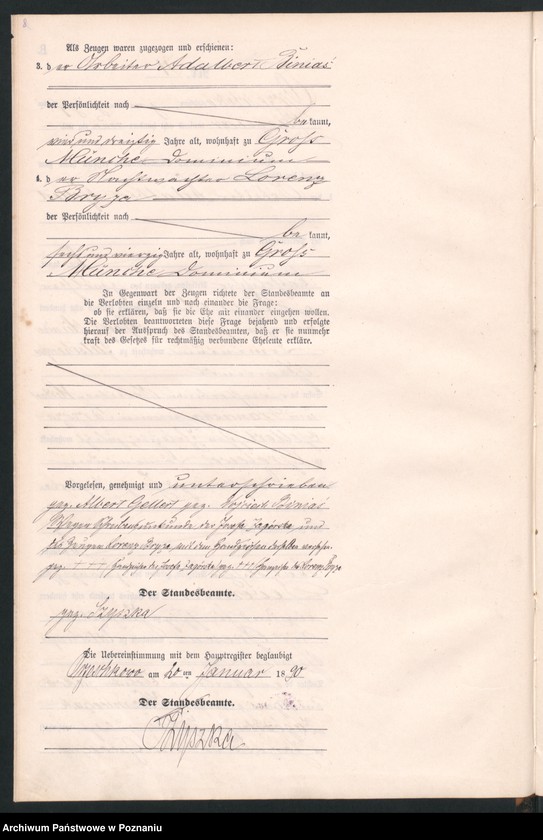 Als Zeugen waren zugezogen und erschienen:
3. der Arbeiter Adalbert Binias
der Persönlichkeit nach
bekannt,
vierunddreißig Jahre alt, wohnhaft zu Gross
Münche Dominium
4. der Nachtwächter Lorenz
Bryza
der Persönlichkeit nach
bekannt,
sechsundvierzig Jahre alt, wohnhaft zu Gross
Münche Dominium
In Gegenwart der Zeugen richtete der Standesbeamte an
die Verlobten einzeln und nach einander die Frage:
ob sie erklären, daß sie die Ehe mit einander eingehen wollen.
Die Verlobten beantworteten diese Frage bejahend und erfolgte
hierauf der Ausspruch des Standesbeamten, daß er sie nunmehr
kraft des Gesetzes für rechtmäßig verbundene Eheleute erkläre.
Vorgelesen, genehmigt und unterschrieben
gez. Albert Gellert gez. Wojciech Binias
Wegen Schreibensunkunde der Josefa Jagórska und
des Zeugen Lorenz Bryza, mit dem Handzeichen derselben versehen.
gez. +++ Handzeichen der Josefa Jagórska gez. +++ Handzeichen des Lorenz Bryza
Der Standesbeamte.
gez. Szyszka
Die Uebereinstimmung mit dem Hauptregister beglaubigt
am 20ten Januar 1890
Der Standesbeamte.
Szyszka
Archiwum Państwowe w Poznaniu